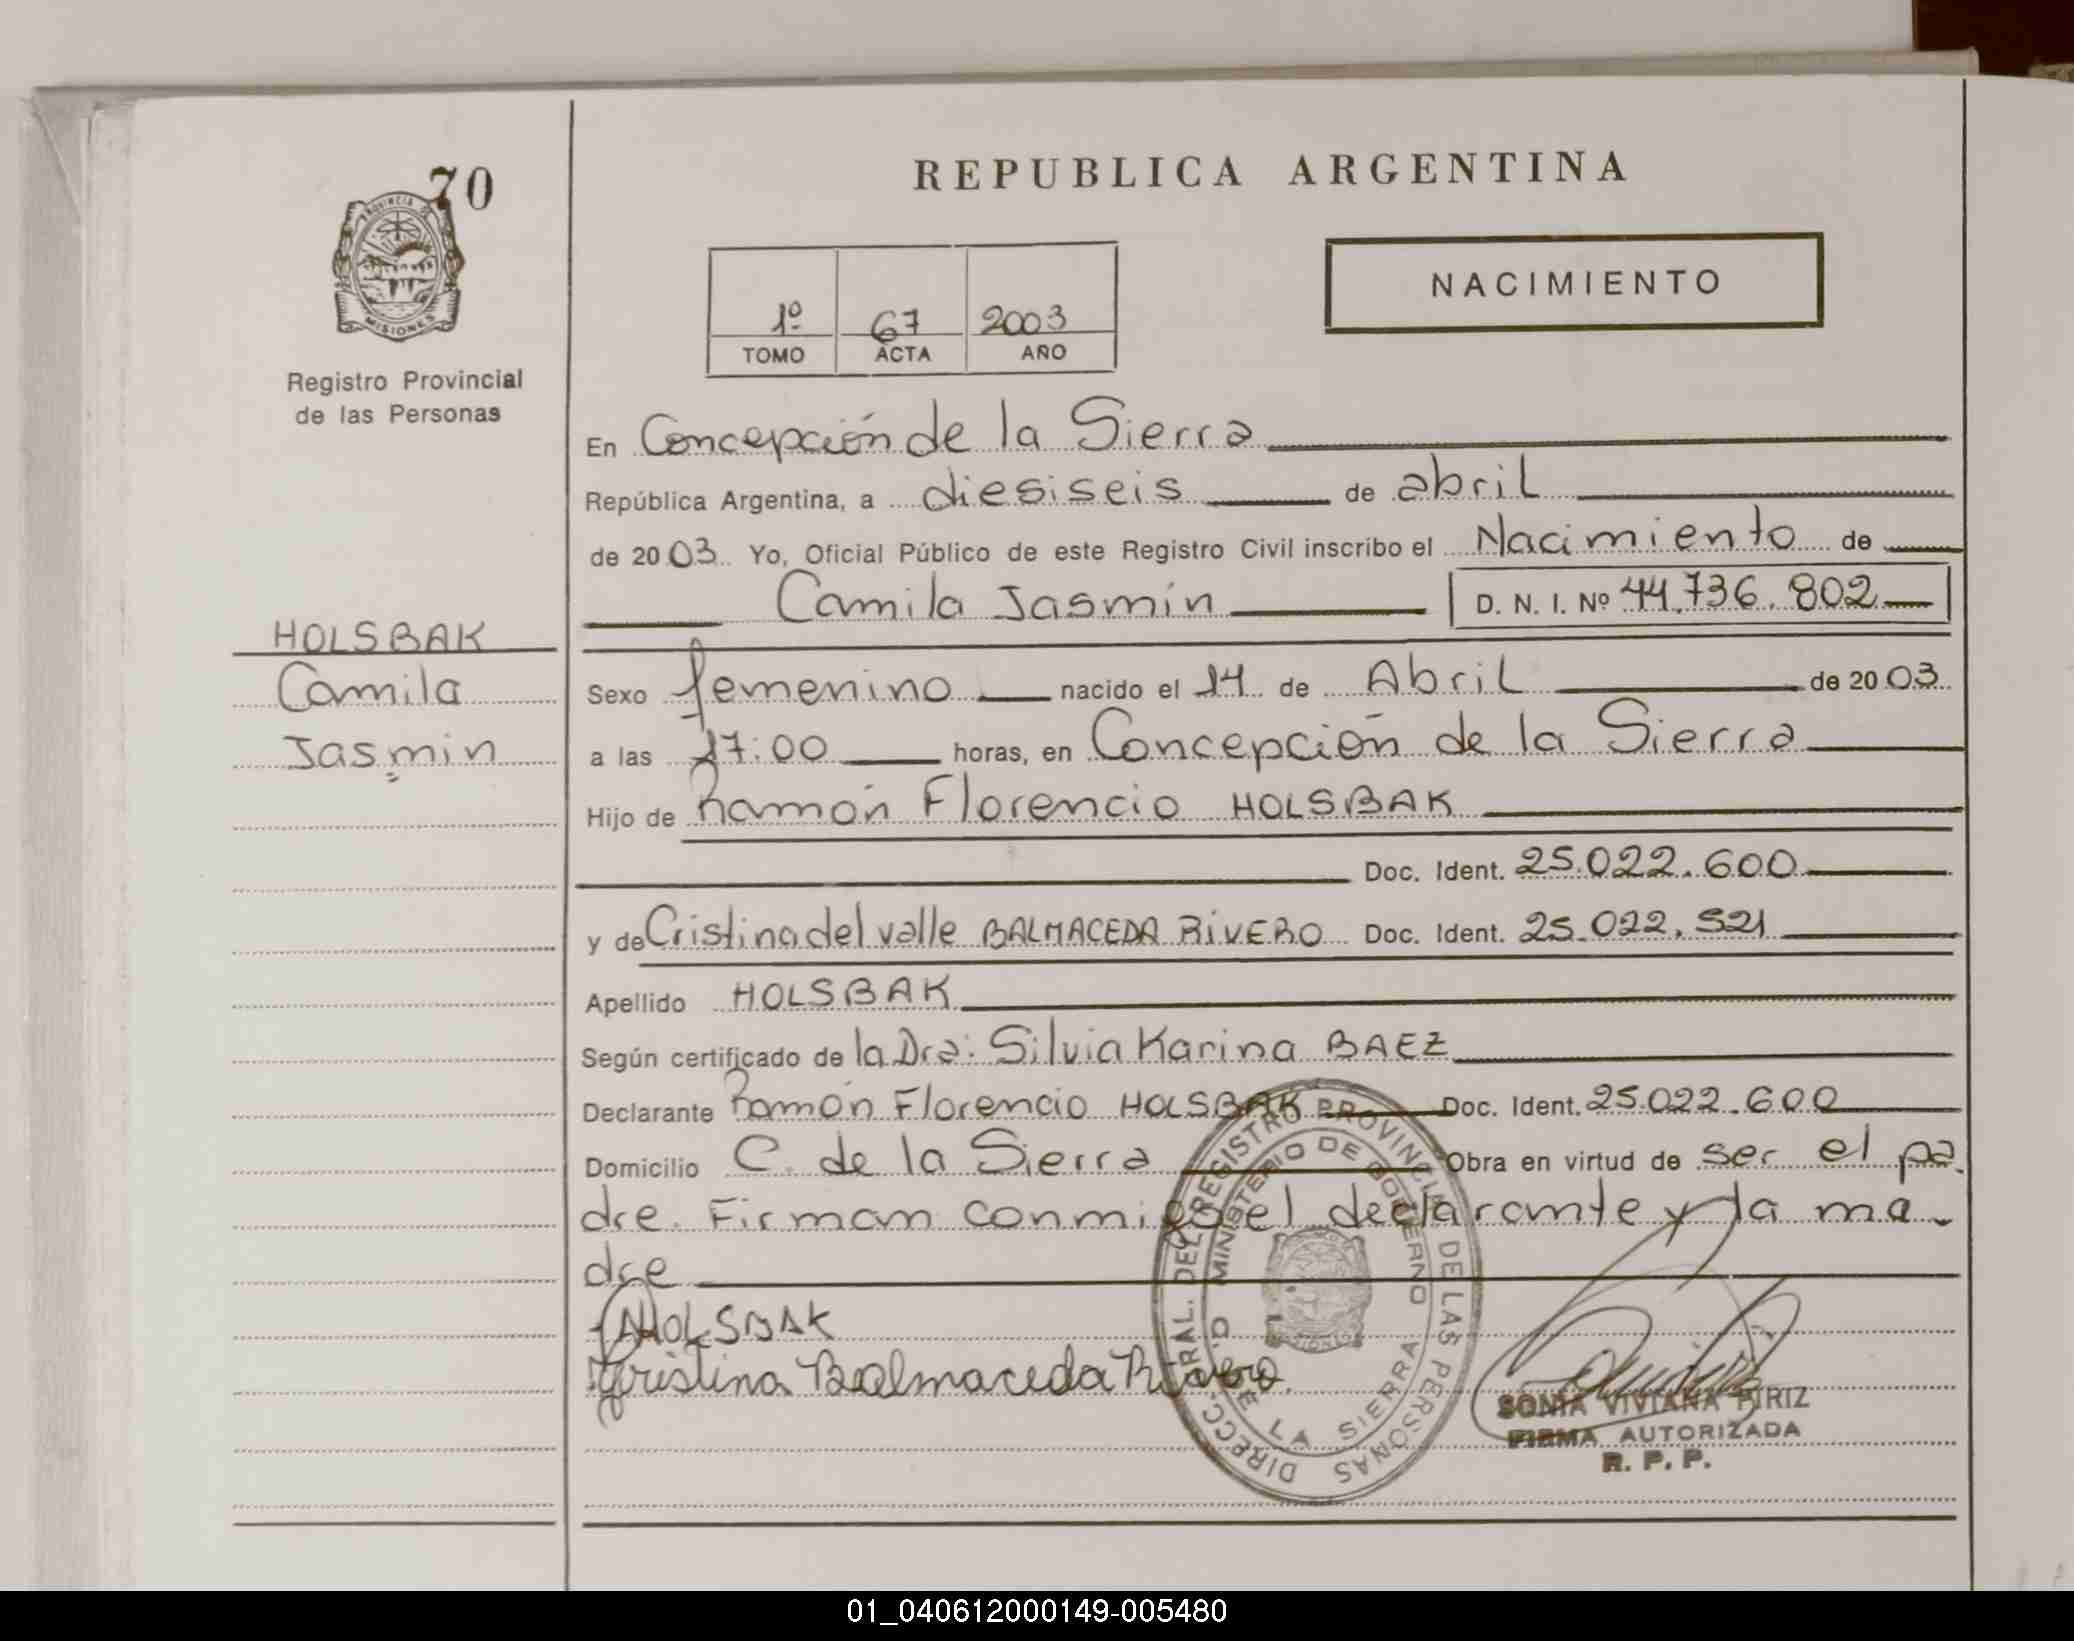 70
PROVINCIA DE
MISIONES
Registro Provincial
de las Personas
HOLSBAK
Camila
Jasmin
REPUBLICA ARGENTINA
NACIMIENTO
1º 67 2003
TOMO ACTA AÑO
En Concepción de la Sierra
República Argentina, a diesiseis de abril
de 2003. Yo, Oficial Público de este Registro Civil inscribo el Nacimiento de
Camila Jasmín D. N. I. Nº 44.736.802
Sexo femenino nacido el 14 de Abril de 2003
a las 17:00 horas, en Concepción de la Sierra
Hijo de Ramón Florencio HOLSBAK
Doc. Ident. 25.022.600
y de Cristina del valle BALMACEDA RIVERO Doc. Ident. 25.022.521
Apellido HOLSBAK
Según certificado de la Dra: Silvia Karina BAEZ
Declarante Ramón Florencio HOLSBAK Doc. Ident. 25.022.600
Domicilio C. de la Sierra Obra en virtud de ser el pa-
dre. Firman conmigo el declarante y la ma-
dre
HOLSBAK
Cristina Balmaceda Rivero.
DIRECC. GRAL. DEL REGISTRO PROVINCIAL DE LAS PERSONAS
MINISTERIO DE GOBIERNO
DE LA SIERRA
SONIA VIVIANA PIRIZ
FIRMA AUTORIZADA
R. P. P.
01_040612000149-005480